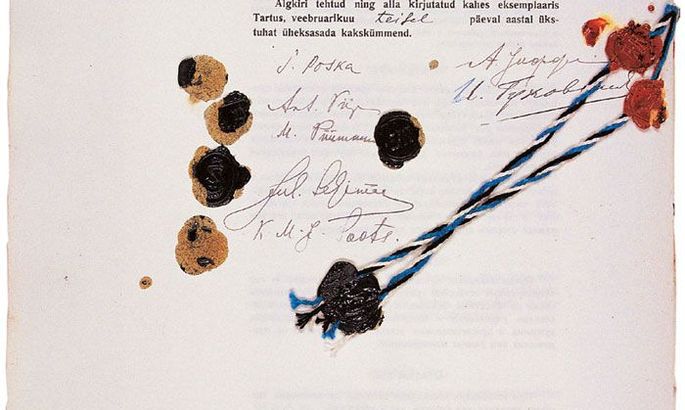 Algkiri tehtud ning alla kirjutatud kahes eksemplaaris
Tartus, veebruarikuu teisel päeval aastal üks-
tuhat üheksasada kakskümmend.
J. Poska
А. Иоффе
Ant. Piip
М. Püümann
Jul. Seljamaa